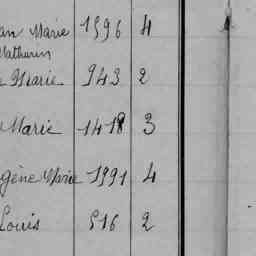 an Marie 1596 4
Mathurin
e Marie 943 2
Marie 1418 3
gène Marie 1991 4
Louis 516 2